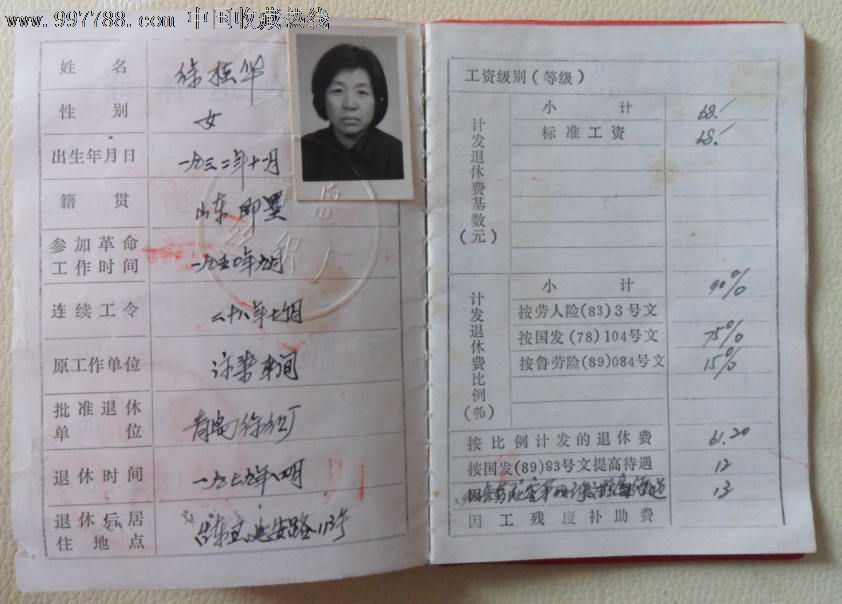 www.997788.com 中国收藏热线
姓 名 徐桂华
性 别 女
出生年月日 一九三二年十一月
籍 贯 山东即墨
参加革命
工作时间 一九五〇年九月
连续工令 二十八年七月
原工作单位 车间
批准退休
单 位 青岛 厂
退休时间 一九七九年 四月
退休后居
住地点 台东五 延安路113号
工资级别(等级)
计发退休费基数(元)
小 计 68.
标准工资 68.
计发退休费比例(%)
小 计 90%
按劳人险(83)3号文
按国发(78)104号文 75%
按鲁劳险(89)084号文 15%
按比例计发的退休费 61.20
按国发(89)83号文提高待遇 12
13
因工残废补助费